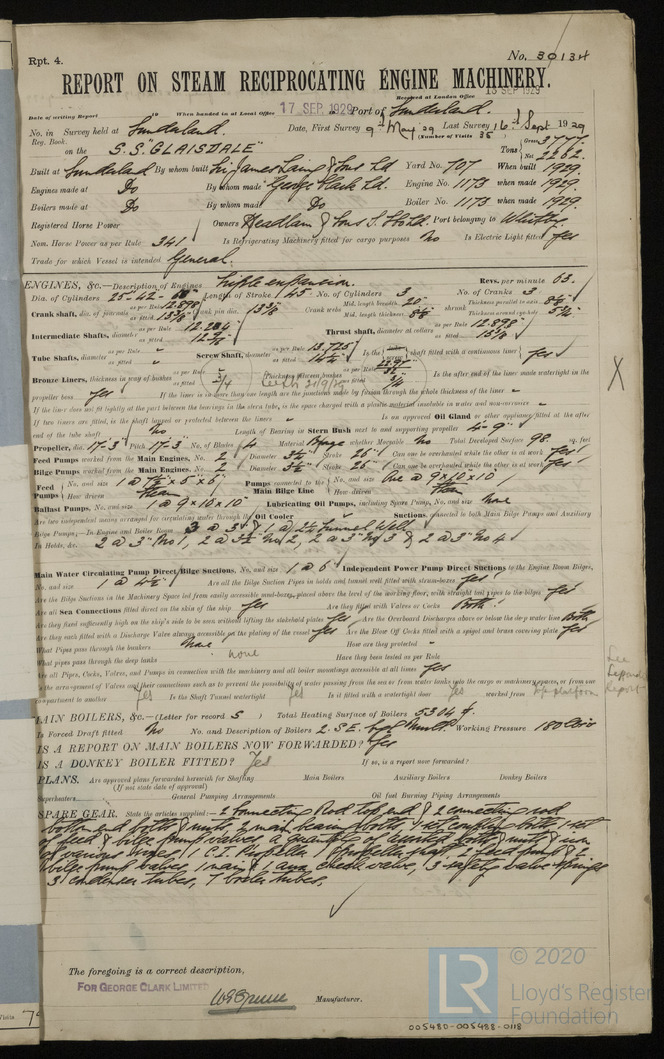 Rpt. 4.
No. 30134
REPORT ON STEAM RECIPROCATING ENGINE MACHINERY.
Received at London Office 18 SEP 1929
Date of writing Report 19 When handed in at Local Office 17 SEP. 1929 Port of Sunderland.
No. in Survey held at Sunderland. Date, First Survey 9th May 29 Last Survey 16th Sept 1929
Reg. Book. (Number of Visits 35)
on the S.S. "GLAISDALE" Tons Gross 3777. Net 2262.
Built at Sunderland By whom built Sir James Laing & Sons Ld Yard No. 707 When built 1929.
Engines made at Do By whom made George Clark Ld. Engine No. 1173 when made 1929.
Boilers made at Do By whom made Do Boiler No. 1173 when made 1929.
Registered Horse Power Owners Headlam & Sons Port belonging to Whitby
Nom. Horse Power as per Rule 341 Is Refrigerating Machinery fitted for cargo purposes No Is Electric Light fitted Yes
Trade for which Vessel is intended General.
ENGINES, &c.—Description of Engines Triple expansion. Revs. per minute 63.
Dia. of Cylinders 25-42- Length of Stroke 45 No. of Cylinders 3 No. of Cranks 3
Crank shaft, dia. of journals as per Rule 12.898 as fitted 13 3/8 Crank pin dia. 13 3/8 Crank webs Mid. length breadth 20 Mid. length thickness 8 1/2 shrunk Thickness parallel to axis 8 1/2 Thickness around eyehole
Intermediate Shafts, diameter as per Rule 12.284 as fitted Thrust shaft, diameter at collars as per Rule 12.898 as fitted 13 3/8
Tube Shafts, diameter as per Rule as fitted Screw Shaft, diameter as per Rule 13.725 as fitted 14 1/2 Is the screw shaft fitted with a continuous liner Yes
Bronze Liners, thickness in way of bushes as per Rule as fitted 3/4 Thickness between bushes as per Rule as fitted Is the after end of the liner made watertight in the
propeller boss Yes If the liner is in more than one length are the joints made by fusion through the whole thickness of the liner
If the liner does not fit tightly at the part between the bearings in the stern tube, is the space charged with a plastic material insoluble in water and non-corrosive
If two liners are fitted, is the shaft lapped or protected between the liners Is an approved Oil Gland or other appliance fitted at the after
end of the tube shaft No Length of Bearing in Stern Bush next to and supporting propeller 4'-9"
Propeller, dia. 17-3" Pitch 17-3" No. of Blades 4 Material Bronze whether Moveable No Total Developed Surface 98 sq. feet
Feed Pumps worked from the Main Engines, No. 2 Diameter 3 1/2 Stroke 26" Can one be overhauled while the other is at work Yes
Bilge Pumps worked from the Main Engines, No. 2 Diameter 3 1/2 Stroke 26" Can one be overhauled while the other is at work Yes
Feed Pumps No. and size 1 @ 7 1/2 x 5 x 6 How driven Steam Pumps connected to the Main Bilge Line No. and size One @ 9 x 10 x 10 How driven Steam
Ballast Pumps, No. and size 1 @ 9 x 10 x 10 Lubricating Oil Pumps, including Spare Pump, No. and size None
Are two independent means arranged for circulating water through the Oil Cooler Suctions, connected to both Main Bilge Pumps and Auxiliary
Bilge Pumps;—In Engine and Boiler Room 3 @ 3" & 1 @ 2 1/2 Tunnel Well
In Holds, &c. 2 @ 3" No 1, 2 @ 3 1/2 No 2, 2 @ 3" No 3 & 2 @ 3" No 4
Main Water Circulating Pump Direct Bilge Suctions, No. and size 1 @ 6" Independent Power Pump Direct Suctions to the Engine Room Bilges,
No. and size 1 @ 4 1/2" Are all the Bilge Suction Pipes in holds and tunnel well fitted with strum-boxes Yes
Are the Bilge Suctions in the Machinery Space led from easily accessible mud-boxes, placed above the level of the working floor, with straight tail pipes to the bilges Yes
Are all Sea Connections fitted direct on the skin of the ship Yes Are they fitted with Valves or Cocks Both
Are they fixed sufficiently high on the ship's side to be seen without lifting the stokehold plates Yes Are the Overboard Discharges above or below the deep water line Both
Are they each fitted with a Discharge Valve always accessible on the plating of the vessel Yes Are the Blow Off Cocks fitted with a spigot and brass covering plate Yes
What Pipes pass through the bunkers None How are they protected
What pipes pass through the deep tanks none Have they been tested as per Rule
Are all Pipes, Cocks, Valves, and Pumps in connection with the machinery and all boiler mountings accessible at all times Yes
Is the arrangement of Valves and their connections such as to prevent the possibility of water passing from the sea or from water tanks into the cargo or machinery spaces, or from one
compartment to another Yes Is the Shaft Tunnel watertight Yes Is it fitted with a watertight door Yes worked from Top platform
See Separate Report
MAIN BOILERS, &c.—(Letter for record S) Total Heating Surface of Boilers 5304
Is Forced Draft fitted No No. and Description of Boilers 2. S.E. Working Pressure 180
IS A REPORT ON MAIN BOILERS NOW FORWARDED? Yes
IS A DONKEY BOILER FITTED? Yes If so, is a report now forwarded?
PLANS. Are approved plans forwarded herewith for Shafting Main Boilers Auxiliary Boilers Donkey Boilers
(If not state date of approval)
Superheaters General Pumping Arrangements Oil fuel Burning Piping Arrangements
SPARE GEAR. State the articles supplied:— 2 Connecting Rod top end & 2 connecting rod
bottom end bolts & nuts, 2 main bearing bolts, 1 set coupling bolts, 1 set
of feed & bilge pump valves, a quantity of assorted bolts & nuts & iron
of various sizes, 1 C.I. Propeller, 1 Propeller shaft,
bilge pump valves 1 main & 1 aux. check valve, 3 safety valve springs
3 condenser tubes, 7 boiler tubes.
The foregoing is a correct description,
FOR GEORGE CLARK LIMITED
Manufacturer.
LR © 2020 Lloyd's Register Foundation
005480-005488-0118